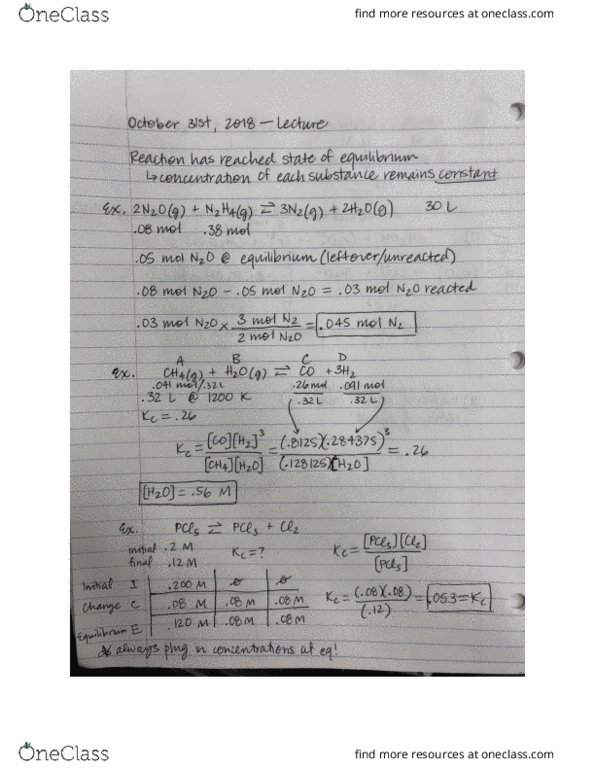 OneClass
find more resources at oneclass.com
October 31st, 2018 — Lecture
Reaction has reached state of equilibrium
↳ concentration of each substance remains constant
Ex. 2N₂O(g) + N₂H₄(g) ⇌ 3N₂(g) + 2H₂O(g) 30 L
.08 mol .38 mol
.05 mol N₂O @ equilibrium (leftover/unreacted)
.08 mol N₂O - .05 mol N₂O = .03 mol N₂O reacted
.03 mol N₂O × 3 mol N₂ / 2 mol N₂O = .045 mol N₂
A B C D
Ex. CH₄(g) + H₂O(g) ⇌ CO + 3H₂
.041 mol/.32L .26 mol .091 mol
.32 L @ 1200 K .32 L .32 L
Kc = .26
Kc = [CO][H₂]³ / [CH₄][H₂O] = (.8125)(.284375)³ / (.128125)[H₂O] = .26
[H₂O] = .56 M
Ex. PCl₅ ⇌ PCl₃ + Cl₂
initial .2 M Kc = ? Kc = [PCl₃][Cl₂] / [PCl₅]
final .12 M
Initial I .200 M ∅ ∅
Change C .08 M .08 M .08 M Kc = (.08)(.08) / (.12) = .053 = Kc
Equilibrium E .120 M .08 M .08 M
* always plug in concentrations at eq!
OneClass
find more resources at oneclass.com